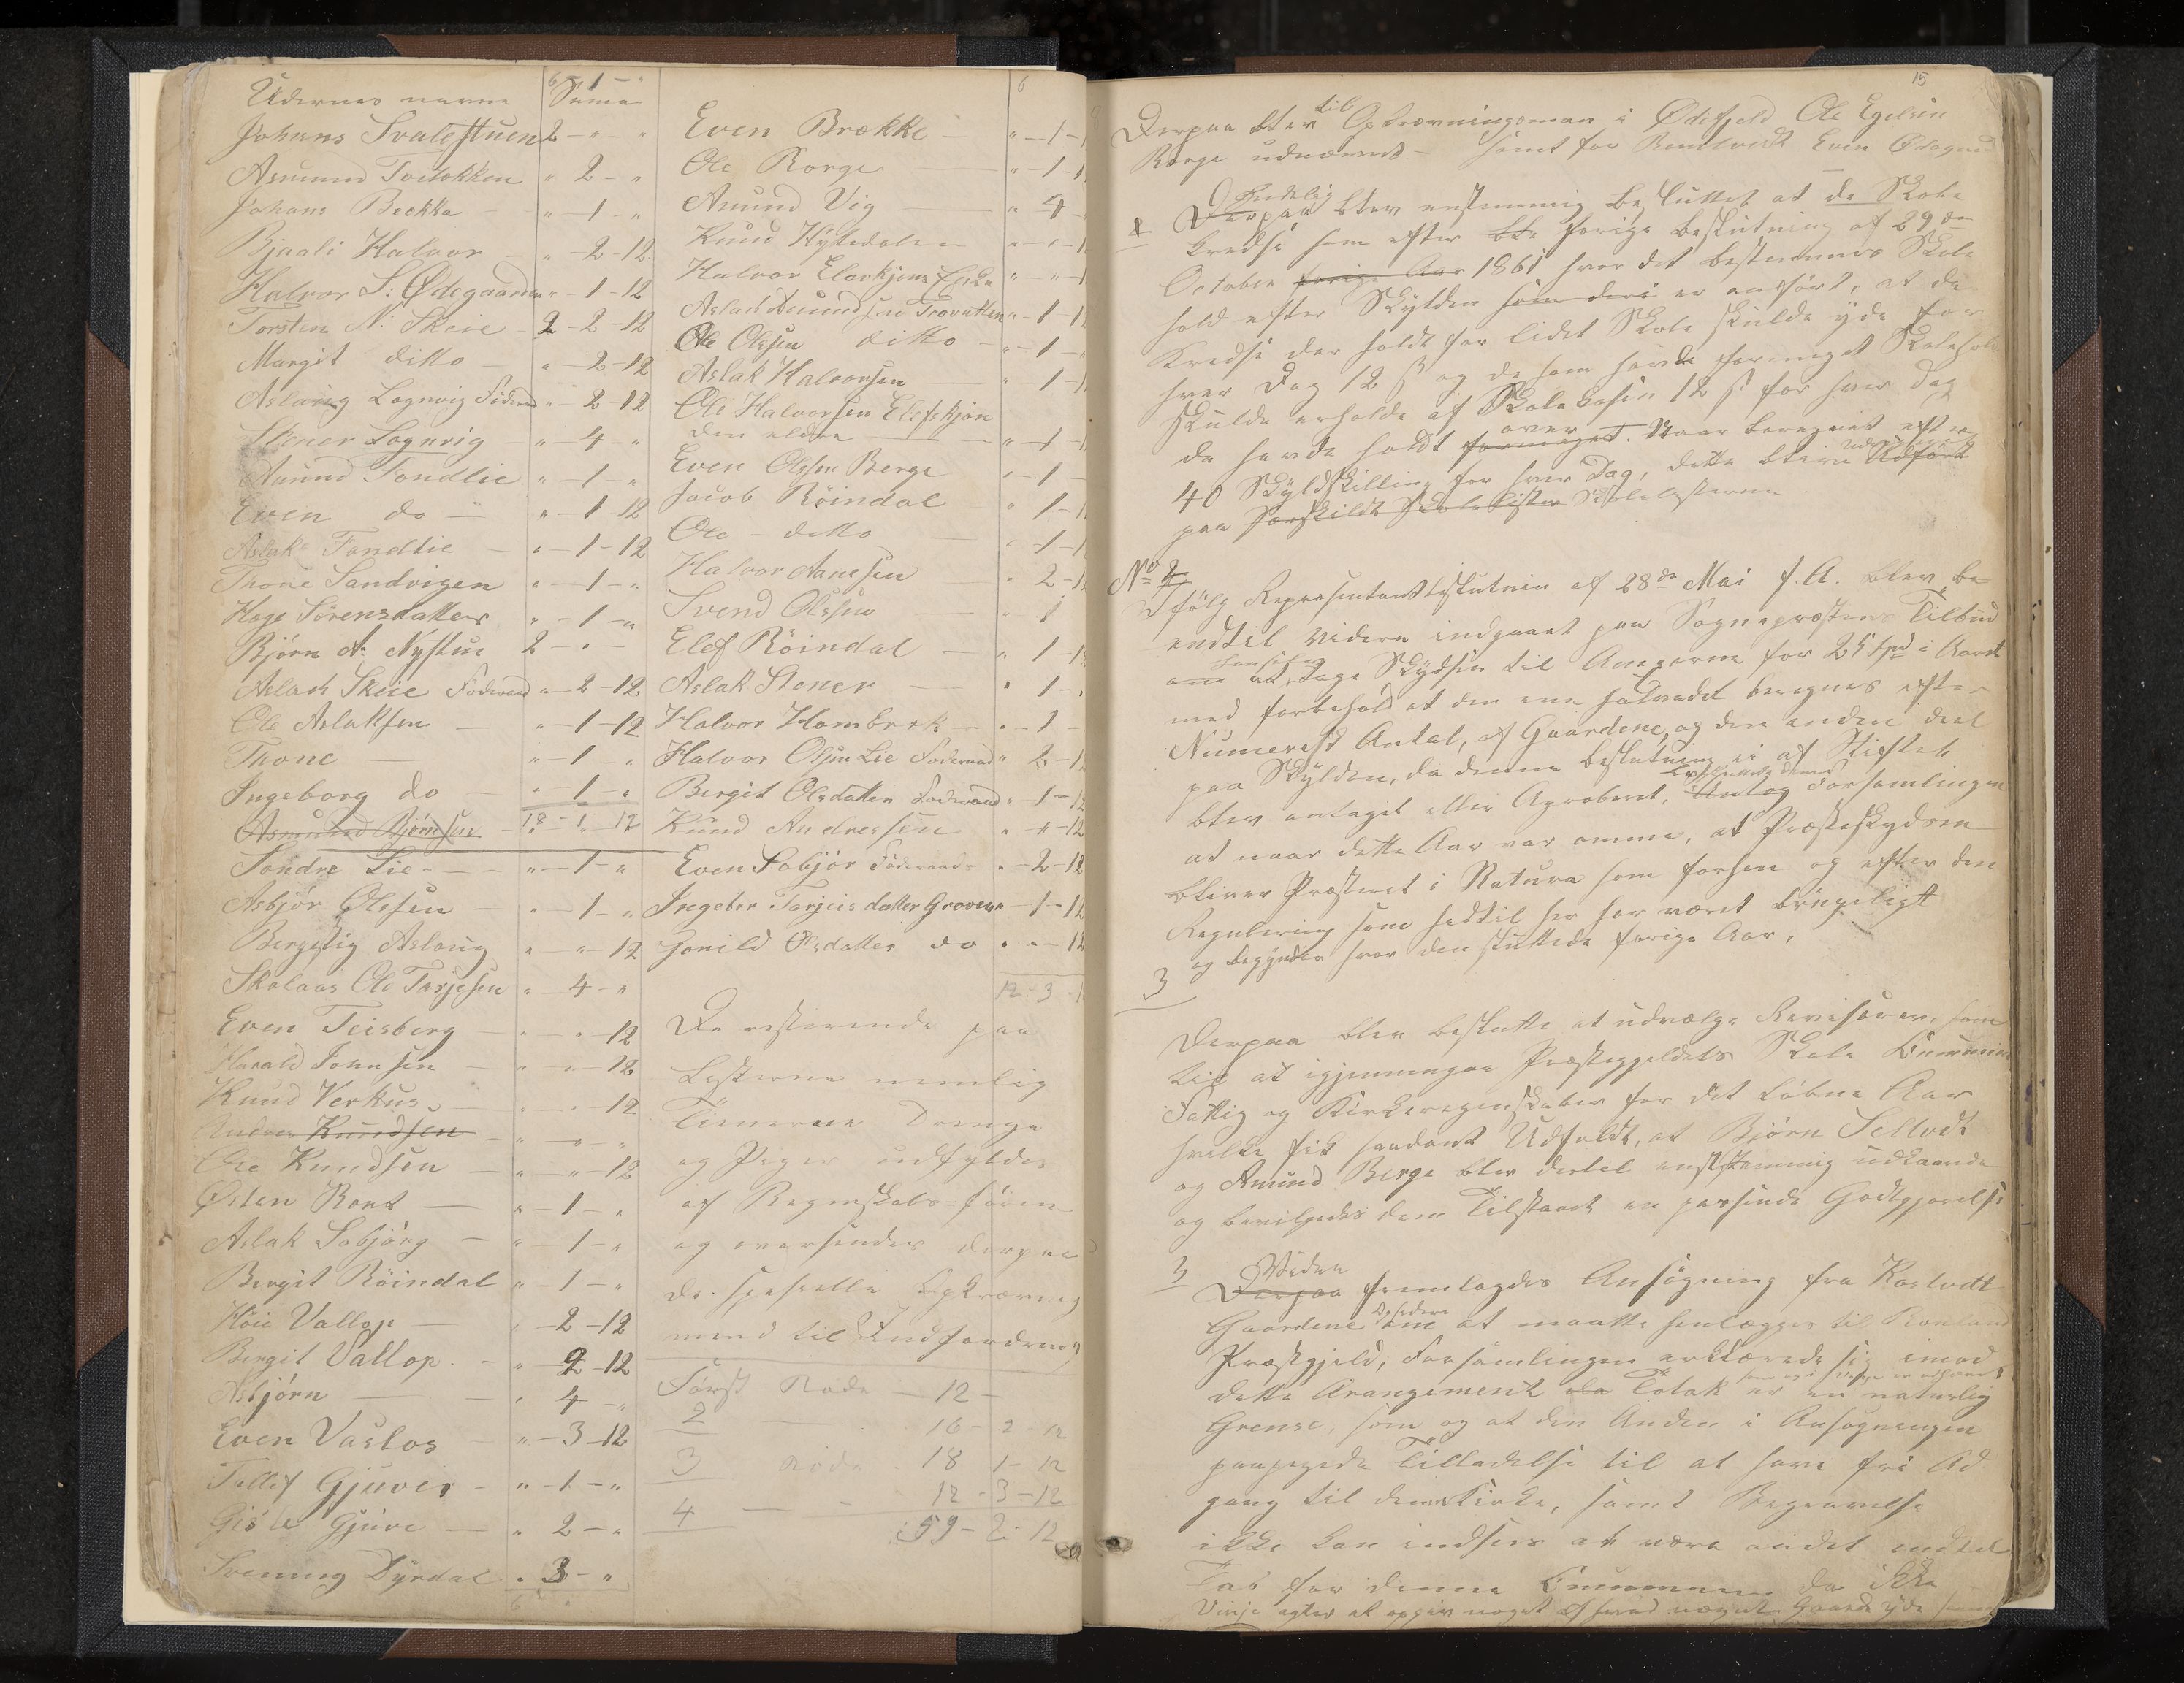 Udernes navne Suma
6 - 1 - "
Johans Svalestuen 2 - " - "
Asmund Torlokken " 2 - "
Johans Beckka " - 1 - "
Bjaali Halvor " - 2 - 12
Halvor S: Ødegaarden " - 1 - 12
Torsten N: Skeie 2 - 2 - 12
Margit ditto " - 2 - 12
Aslaug Lognvig Föderaad " - 2 - 12
Stener Lognvig " - 4 - "
Amund Tondlie " - 1 - "
Even do " - 1 - 12
Aslak Tondlie " - 1 - 12
Thone Sandvigen " - 1 - "
Hege Sörensdatter " - 1 - "
Bjørn A: Nystue 2 - " - "
Aslach Skeie Föderaad " - 2 - 12
Ole Aslaksen " - 1 - 12
Thone " - 1 - "
Ingeborg do " - 1 - "
Asmund Bjørnsen 18 - 1 - 12
Sondre Lie " - 1 - "
Asbjör Olesen " - 1 - "
Bergelig Aslaug " - " - 12
Skolaas Ole Tarjesen " - 4 - "
Even Teisberg " - " - 12
Harald Johnsen " - " - 12
Knud Verkus " - " - 12
Anders Knudsen " - " - "
Ole Knudsen " - " - 12
Østen Bont " - 1 - "
Aslak Lobjörg " - 1 - "
Bergit Röindal " - 1 - "
Høie Vallop " - 2 - 12
Bergit Vallop " - 2 - 12
Asbjörn " 4 - "
Even Vaslos " - 3 - 12
Tallef Gjuver " - 1 - "
Gisle Gjuve " 2 - "
Svenung Dyrdal " 3 - "
6
Even Brække " - 1 -
Ole Borge " - 1 -
Amund Vig " 4 -
Knud Hyltedalen
Halvor Elovkjons Enke
Aslach Amundsen Grovatten " - 1 -
Ole Olsen ditto " - 1 -
Aslak Halvorsen " - 1 -
Ole Halvorsen Elefskjön
den eldre " - 1 -
Even Olsen Berge " - 1 -
Jacob Röindal " 1 -
Ole ditto " - 1 -
Halvor Aanesen " 2 -
Svend Olsen " 1
Elef Röindal " 1 -
Aslak Stener " 1 -
Halvor Hombrek " - 1 -
Halvor Olsen Lie Föderaad " 2 -
Bergit Olsdatter Föderaad " - 1 - 12
Knud Andresen " - " - 12
Even Lobjör Föderaad " - 2 - 12
Ingebor Tarjeisdatter Groven " - 1 - 12
Gonild Olsdatter do " - " - 12
12 - 3 - 1
De resterende paa
Listerne nemlig
Tienerne Drenge
og Piger udfyldes
af Regnskabs-föien
og oversendes derpaa
de spesielle Opkrævnings
mænd til Indfordring
Först Rode 12 -
2 16 - 2 - 12
3 Rode 18 1 - 12
4 12 - 3 - 12
59 - 2 - 12
15
Derpaa blev til Opkrævningsman i Ødefjeld Ole Egelsen
Borge udnævnt - samt for Even Ødegaard
Endelig
Derpaa blev enstemmig besluttet at de Skole
kredse som efter forige Beslutning af 29de
October forige Aar 1861 hvor det bestemmes Skole
hold efter Skylden som deri er anført, at de
Kredse der holdt for lidet Skole skulde yde for
hver Dag 12 ß og de som havde formeget Skolehold
skulde erholde af Skolekasen 12 ß for hver Dag
de havde holdt formeget over. Naar beregnet efter
40 Skyldskilling for hver Dag, dette bliver Udført
paa særskildt Skolelister Skolelisterne
No 2
Ifölg Repræsentantbeslutnin af 28de Mai f. A. blev be
indtil videre indgaaet paa Sognepræstens Tilbud
om at tage Skydsen til Anexerne for 25 Spd i Aaret
med forbehold at den ene halvadel beregnes efter
Numerest Antal, af Gaardene, og den anden deel
paa Skylden, da denne beslutning ei af Stiftet
blev antaget eller Aproberet, Antog Forsamlingen
at naar dette Aar var omme, at Præsteskydsen
bliver Præsteret i Natura som forhen og efter den
Regulering som hedtil her har været brugeligt
og begynder hvor den sluttede forige Aar,
3
Derpaa blev beslutte at udvælge Revisorer, som
til at igjennemgaa Præstegjeldets Skole Commune
Fattig og Kirkeregenskaber for det løbne Aar
hvilke fik saadant Udfaldt, at Bjørn Selludt
og Amund Berge blev dertil enststemmig udkaarede
og beviljedes dem Tilstaaet en passende Godtgjørelse
3 Viden
Derpaa fremlagdes Ansögning fra Kostvedt
Gaardene Opsedere om at maatte henlægges til Rauland
Præstgjeld, Forsamlingen erklærede sig imod
dette Arangement da Totak er en naturlig
Grense, som og at den Anden i Ansögningen
paapegede Tilladelse til at have fri Ad
gang til denne Kirke, samt Begravelse
ikke kan indsees at være andet end
Tab for denne Commune da ikke
Vinje agter at opgiv noget af hvad nogen Gaard yde